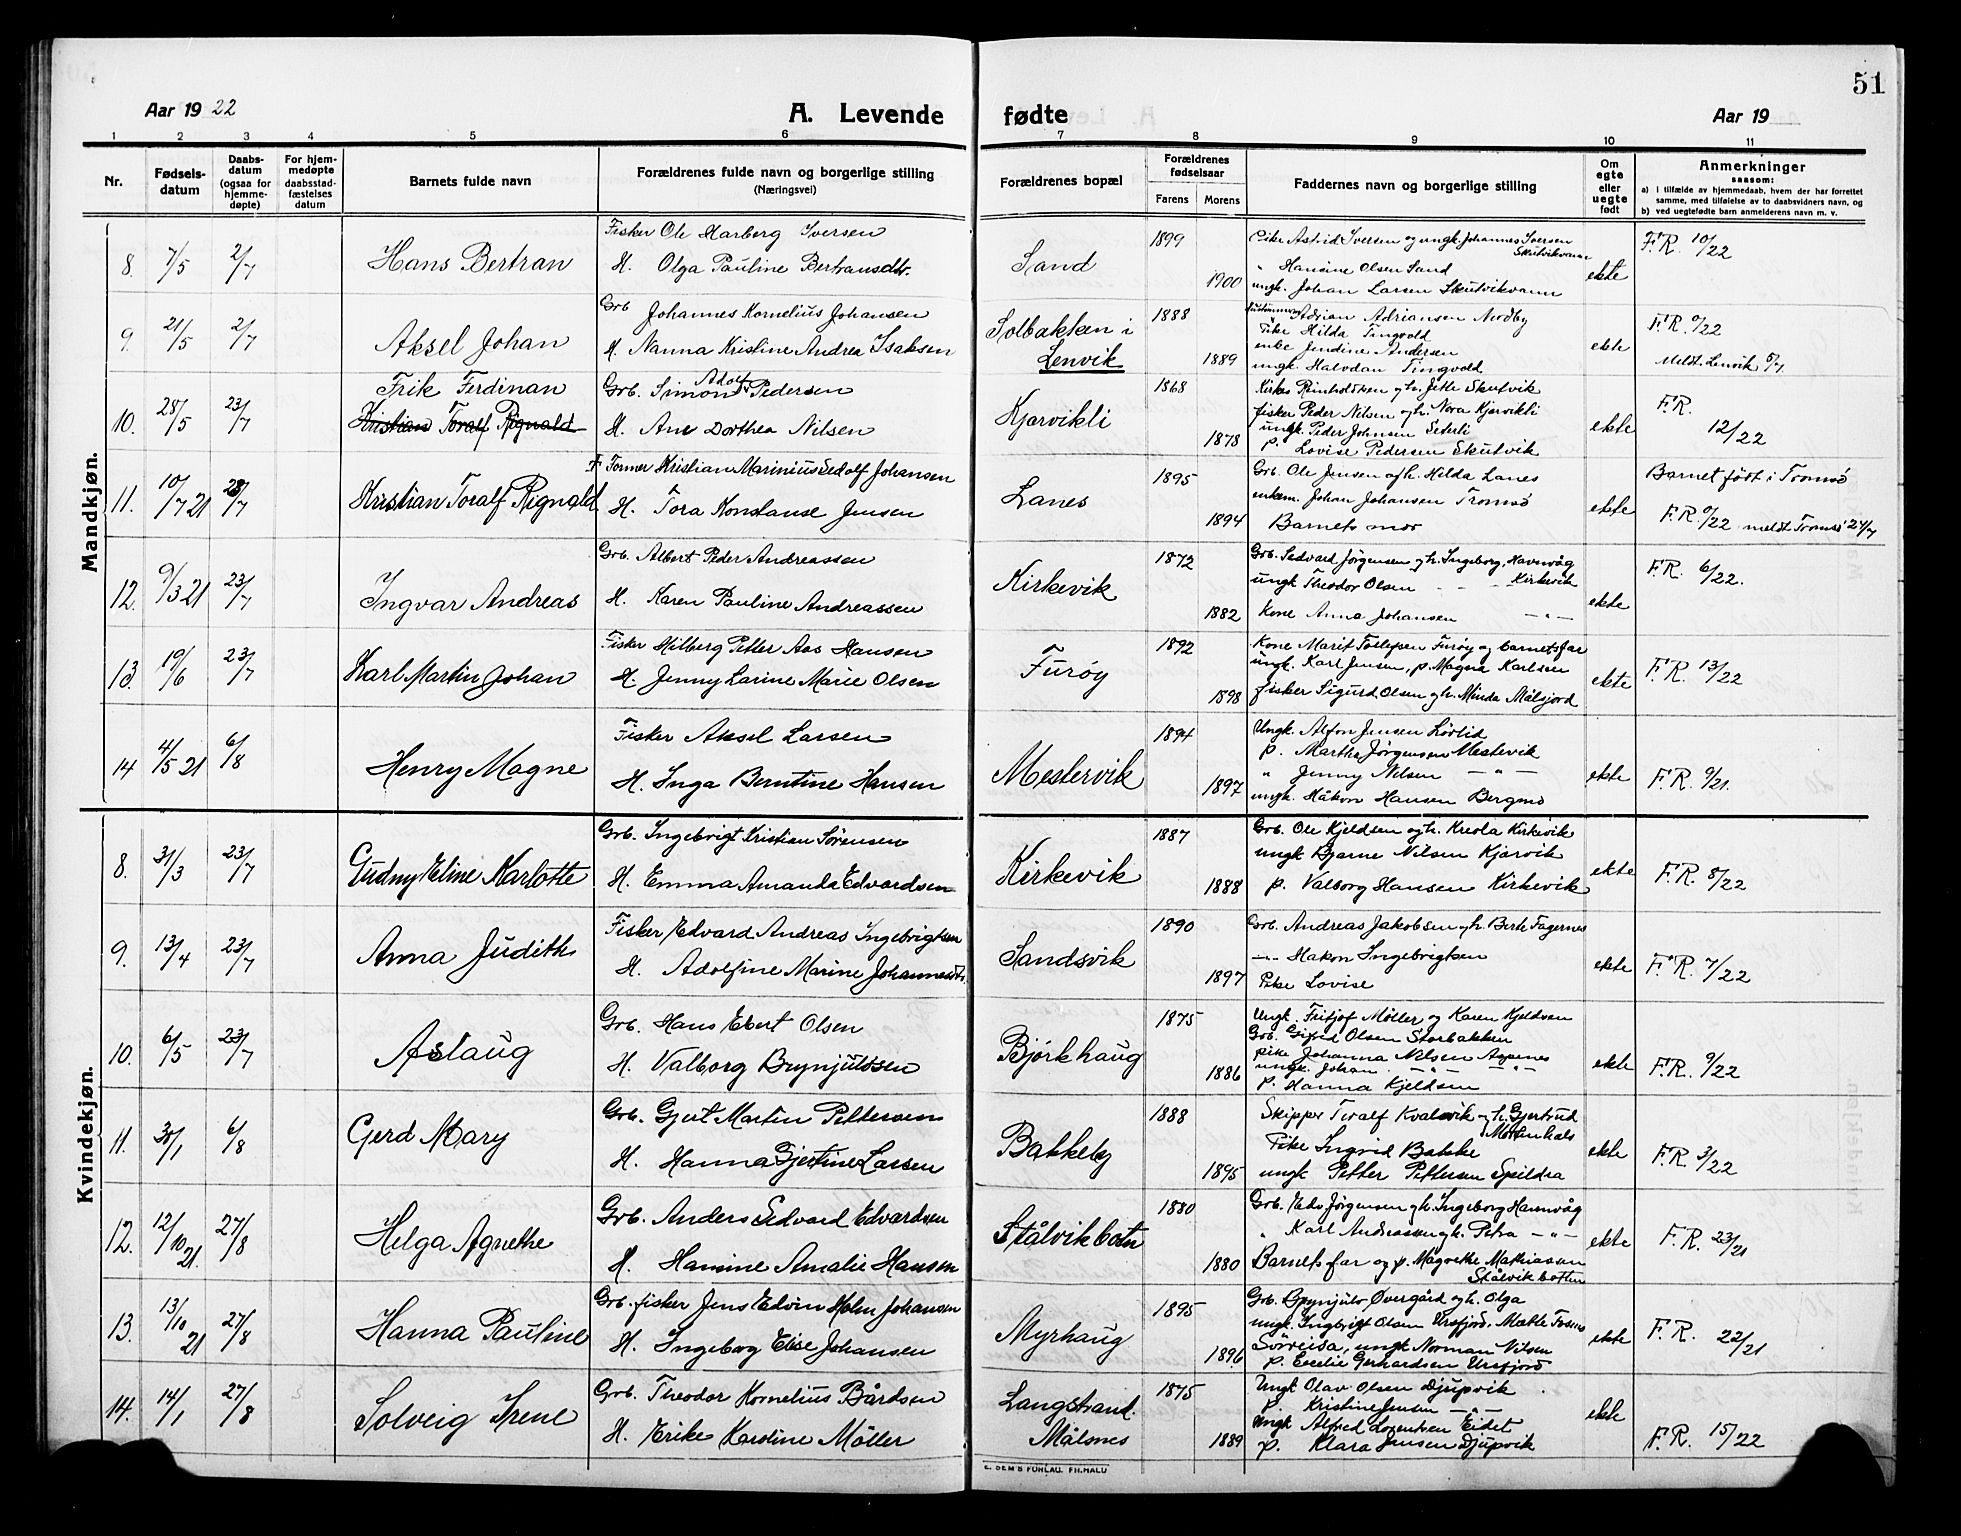 51
Aar 1922
A. Levende
fødte
Aar 19
1 2 3 4 5 6 7 8 9 10 11
Nr.
Fødsels-
datum
Daabs-
datum
(ogsaa for
hjemme-
døpte)
For hjem-
medøpte
daabsstad-
fæstelses
datum
Barnets fulde navn
Forældrenes fulde navn og borgerlige stilling
(Næringsvei)
Forældrenes bopæl
Forældrenes
fødselsaar
Farens Morens
Faddernes navn og borgerlige stilling
Om
egte
eller
uegte
født
Anmerkninger
saasom:
a) i tilfælde av hjemmedaab, hvem der har forrettet
samme, med tilføielse av to daabsvidners navn, og
b) ved uegtefødte barn anmelderens navn m. v.
Mandkjøn.
8. 7/5 2/7 Hans Bertran
Fisker Ole Marberg Iversen
H. Olga Pauline Bertransdtr.
Sand
1899
1900
Pike Astrid Iversen og ungk. Johannes Iversen
Skutvikvann
" Hansine Olsen Sand
ungk. Johan Larsen Skutvikvann
ekte
F.R. 10/22
9. 21/5 2/7 Aksel Johan
Grb Johannes Kornelius Johansen
H. Nanna Kristine Andrea Isaksen
Solbakken i
Lenvik
1888
1889
Adrian Adriansen Nordby
Pike Hilda Tingvold
enke Jendine Andersen
ungk. Halvdan Tingvold
ekte
F.R. 9/22
Meldt. Lenvik 5/7
10. 28/5 23/7 Frik Ferdinan
Kristian Toralf Rignald
Grb. Simon Adolf Pedersen
H. Ane Dorthea Nilsen
Kjarvikli
1868
1878
Kirkes Reinholdtsen og h. Jette Skutvik
fisker Peder Nilsen og h. Nora Kjarvikli
ungk. Peder Johnsen Seterli
p. Lovise Pedersen Skutvik
ekte
F.R.
12/22
11. 10/7 21 23/7 Kristian Toralf Rignald
F Former Kristian Marinius Sedolf Johansen
H. Tora Konstanse Jensen
Lanes
1895
1894
Grb. Ole Jensen og h. Hilda Lanes
enkem. Johan Johansen Tromsö
Barnets mor
ekte
Barnet født i Tromsö
F.R. 9/22 meldt Tromsö 24/7
12. 9/3 21 23/7 Ingvar Andreas
Grb. Albert Peder Andreassen
H. Karen Pauline Andreassen
Kirkevik
1872
1882
Grb. Sedvard Jørgensen og h. Ingeborg, Havnvåg
ungk Theodor Olsen Kirkevik
Kone Anna Johansen — " —
ekte
F.R. 6/22.
13. 19/6 23/7 Karl Martin Johan
Fisker Hilberg Petter Aas Hansen
H. Jenny Larine Marie Olsen
Furöy
1892
1898
Kone Marit Tollefsen Furöy og barnets far
ungk. Karl Jensen, p. Magna Karlsen
fisker Sigurd Olsen og h. Minda Målsjord
ekte
F.R. 13/22
14 4/5 21 6/8 Henry Magne
Fisker Aksel Larsen
H. Inga Berntine Hansen
Mestervik
1894
1897
Ungk. Alfon Jensen Lövlid
p. Martha Jörgensen Mestevik
" Jenny Nilsen — " —
ungk. Håkon Hansen Bergmo
ekte
F.R. 9/21.
Kvindekjøn.
8. 31/3 23/7 Gudny Eline Karlotte
Grb. Ingebrigt Kristian Sørensen
H. Emma Amanda Edvardsen
Kirkevik
1887
1888
Grb. Ole Kjeldsen og h. Kreola Kirkevik
ungk Bjarne Nilsen Kjarvik
p. Valborg Hansen Kirkevik
ekte
F.R. 8/22
9. 13/4 23/7 Anna Judith
Fisker Edvard Andreas Ingebrigtsen
H. Adolfine Marine Johannesdtr.
Sandsvik
1890
1897
Grb. Andreas Jakobsen og h. Berte Fagernes
—"— Hakon Ingebrigtsen
Pike Lovise
ekte
F.R. 7/22
10. 6/5 23/7 Aslaug
Grb. Hans Ebert Olsen
H. Valborg Brynjulfsen
Björkhaug
1875
1886
Ungk. Fritjof Møller og Karen Kjeldsen
Grb. Sigfrid Olsen Storbakken
pike Johanna Nilsen Aspenes
ungk. Johan — " — — " —
p. Hanna Kjeldsen
ekte
F.R. 9/22
11. 30/1 6/8 Gerd Mary
Grb. Gjert Martin Pettersen
H. Hanna Gjertine Larsen
Bakkeby
1888
1895
Skipper Toralf Kvalsvik og h. Gjertrud
Mortenhals
Pike Ingrid Bakke
ungk Petter Pettersen Spildra
ekte
F.R. 3/22
12. 12/10 21. 27/8 Helga Agnethe
Grb. Anders Sedvard Edvardsen
H. Hansine Amalie Hansen
Stålvikbotn
1880
1880
Grb. Edv Jørgensen og h. Ingeborg Havnvåg
" Karl Andreassen og h. Petra — " —
Barnets far og p. Magrethe Mathiassen
Stålvikbotten
ekte
F.R. 23/21
13. 13/10 21 27/8 Hanna Pauline
Grb. fisker Jens Edvin Holm Johansen
H. Ingeborg Elise Johansen
Myrhaug
1895
1896
Grb. Brynjulv Øvergård og h. Olga
ungk. Ingbrigt Olsen Ursfjord,
Sörreisa, ungk Norman Nilsen
p. Cecilie Gerhardsen Ursfjord
ekte
F.R. 22/21
14. 14/1 27/8 Solveig Irene
Grb. Theodor Kornelius Bårdsen
H. Erike Karoline Möller
Langstrand.
Målsnes
1875
1889
Ungk Olav Olsen Djupvik
p. Kristine Jensen — " —
Ungk Alfred Lorentsen Eidet
p. Klara Jensen Djupvik
ekte
F.R. 15/22
E. SEM'S FORLAG. FR.HALD